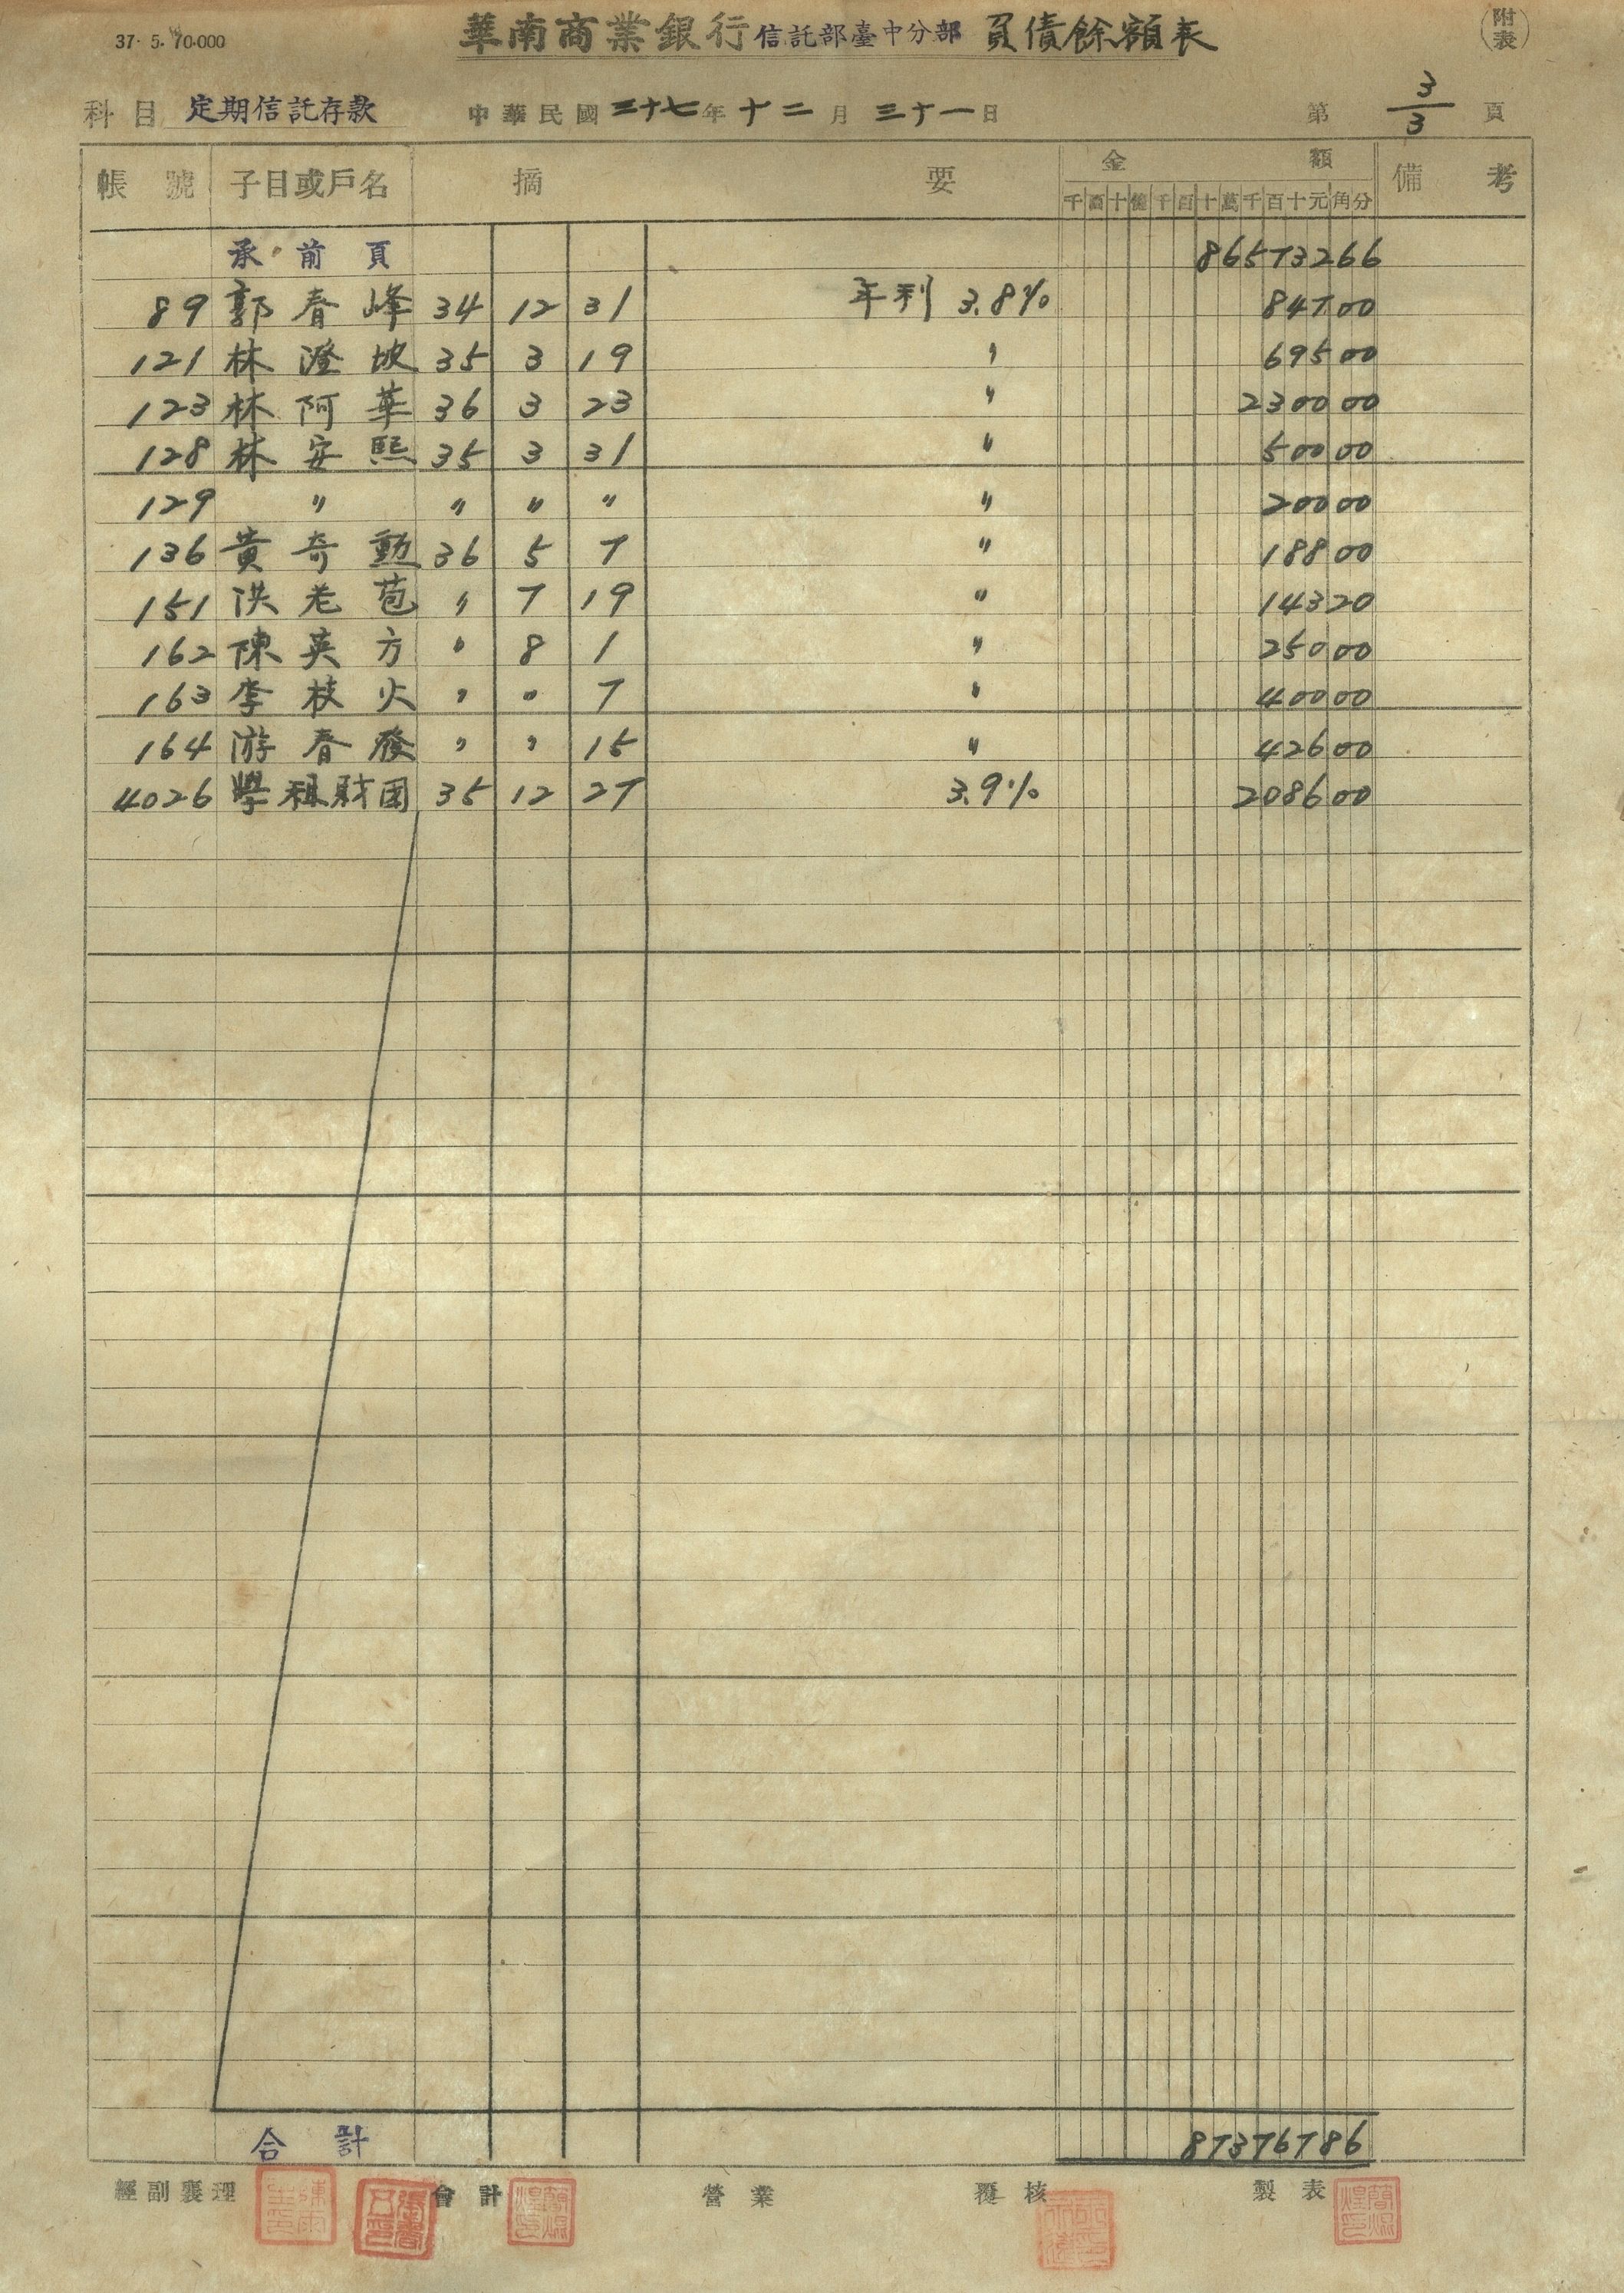 37. 5. 70.000
華南商業銀行信託部臺中分部 負債餘額表
（附表）
科目 定期信託存款 中華民國三十七年十二月三十一日 第 3/3 頁
帳號 子目或戶名 摘要 金額 備考
千百十億千百十萬千百十元角分
承前頁 86573266
89 郭春峰 34 12 31 年利 3.8% 84700
121 林澄坡 35 3 19 〃 69500
123 林阿華 36 3 23 〃 230000
128 林安熙 35 3 31 〃 50000
129 〃 〃 〃 〃 〃 20000
136 黃奇勳 36 5 7 〃 18800
151 洪老苞 〃 7 19 〃 14320
162 陳英方 〃 8 1 〃 25000
163 李枝火 〃 〃 7 〃 40000
164 游春發 〃 〃 15 〃 42600
4026 學租財団 35 12 27 3.9% 208600
合計 87376786
經副襄理 會計 營業 覆核 製表